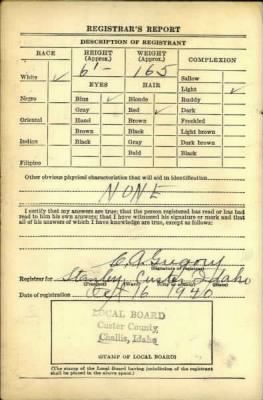 REGISTRAR'S REPORT
DESCRIPTION OF REGISTRANT
RACE HEIGHT (Approx.) WEIGHT (Approx.) COMPLEXION
6'- 165
White ✓ EYES HAIR Sallow
Light ✓
Negro Blue ✓ Blonde Ruddy
Gray Red ✓ Dark
Oriental Hazel Brown Freckled
Brown Black Light brown
Indian Black Gray Dark brown
Bald Black
Filipino
Other obvious physical characteristics that will aid in identification
NONE
I certify that my answers are true; that the person registered has read or has had
read to him his own answers; that I have witnessed his signature or mark and that
all of his answers of which I have knowledge are true, except as follows:
Gregory
(Signature of registrar)
Registrar for Stanley Custer Idaho
(Precinct) (Ward) (City or county) (State)
Date of registration Oct 16 1940
LOCAL BOARD
Custer County
Challis, Idaho
(STAMP OF LOCAL BOARD)
(The stamp of the Local Board having jurisdiction of the registrant
shall be placed in the above space.)